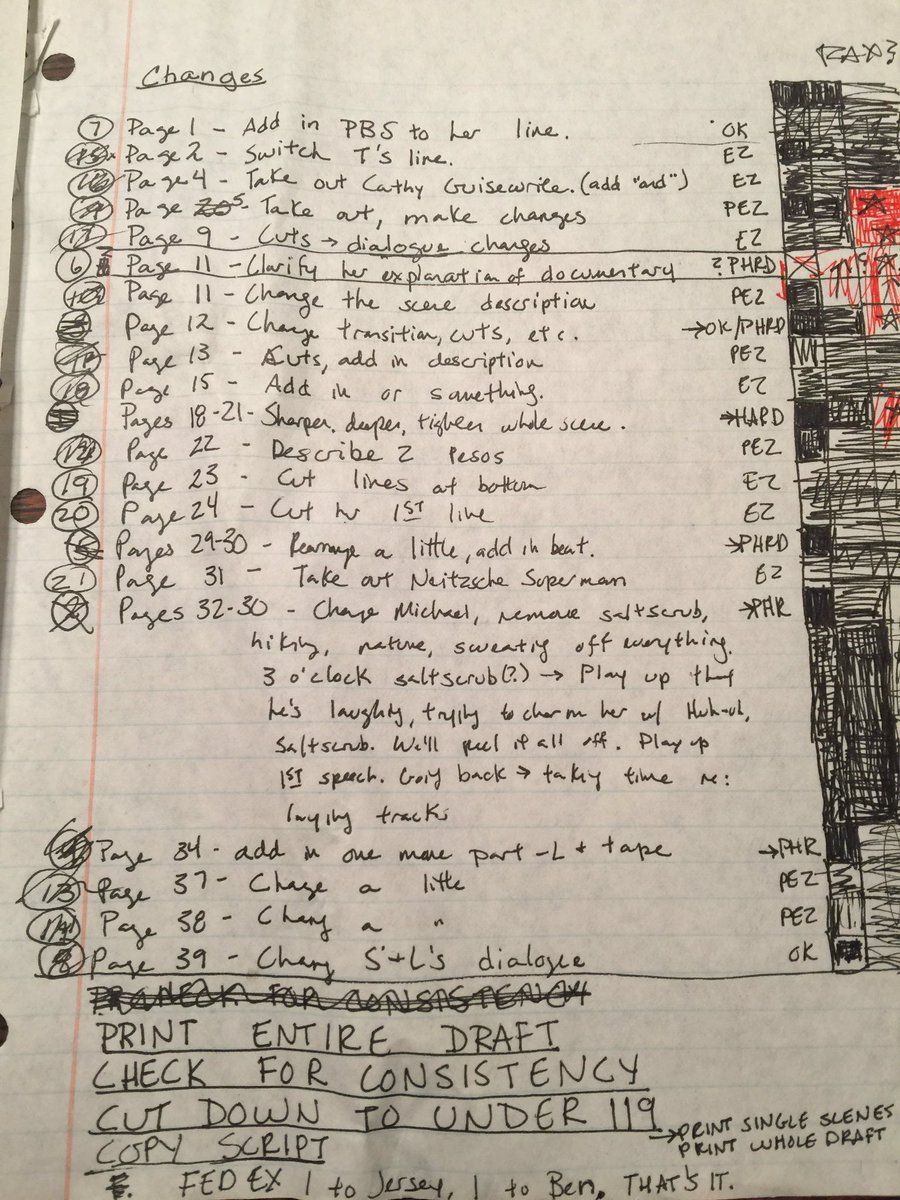 Changes
7 Page 1 - Add in PBS to her line. OK
Page 2 - Switch T's line. EZ
Page 4 - Take out Cathy Guisewite. (add "and") EZ
Page 5 - Take out, make changes PEZ
17 Page 9 - Cuts → dialogue changes EZ
6 Page 11 - Clarify her explanation of documentary ? PHRD
Page 11 - Change the scene description PEZ
Page 12 - Change transition, cuts, etc. → OK/PHRD
Page 13 - Cuts, add in description PEZ
18 Page 15 - Add in or something. EZ
Pages 18-21 - Sharper, deeper, tighten whole scene. → HARD
Page 22 - Describe 2 Pesos PEZ
19 Page 23 - Cut lines at bottom EZ
20 Page 24 - Cut hr 1ST line EZ
Pages 29-30 - Rearrange a little, add in beat. → PHRD
21 Page 31 - Take out Neitzsche Superman EZ
Pages 32-30 - Change Michael, remove saltscrub, → PHR
hiking, nature, sweating off everything.
3 o'clock saltscrub(?) → Play up that
he's laughing, trying to charm her w/ Huh-uh,
saltscrub. We'll peel it all off. Play up
1ST speech. Going back → taking time re:
laying tracks
Page 34 - add in one more part - L + tape → PHR
13 Page 37 - Change a little PEZ
14 Page 38 - Chang a " PEZ
8 Page 39 - Chang S+L's dialogue OK
CHECK FOR CONSISTENCY
PRINT ENTIRE DRAFT
CHECK FOR CONSISTENCY
CUT DOWN TO UNDER 119
→ PRINT SINGLE SCENES
PRINT WHOLE DRAFT
COPY SCRIPT
FED EX 1 to Jersey, 1 to Ben, THAT'S IT.